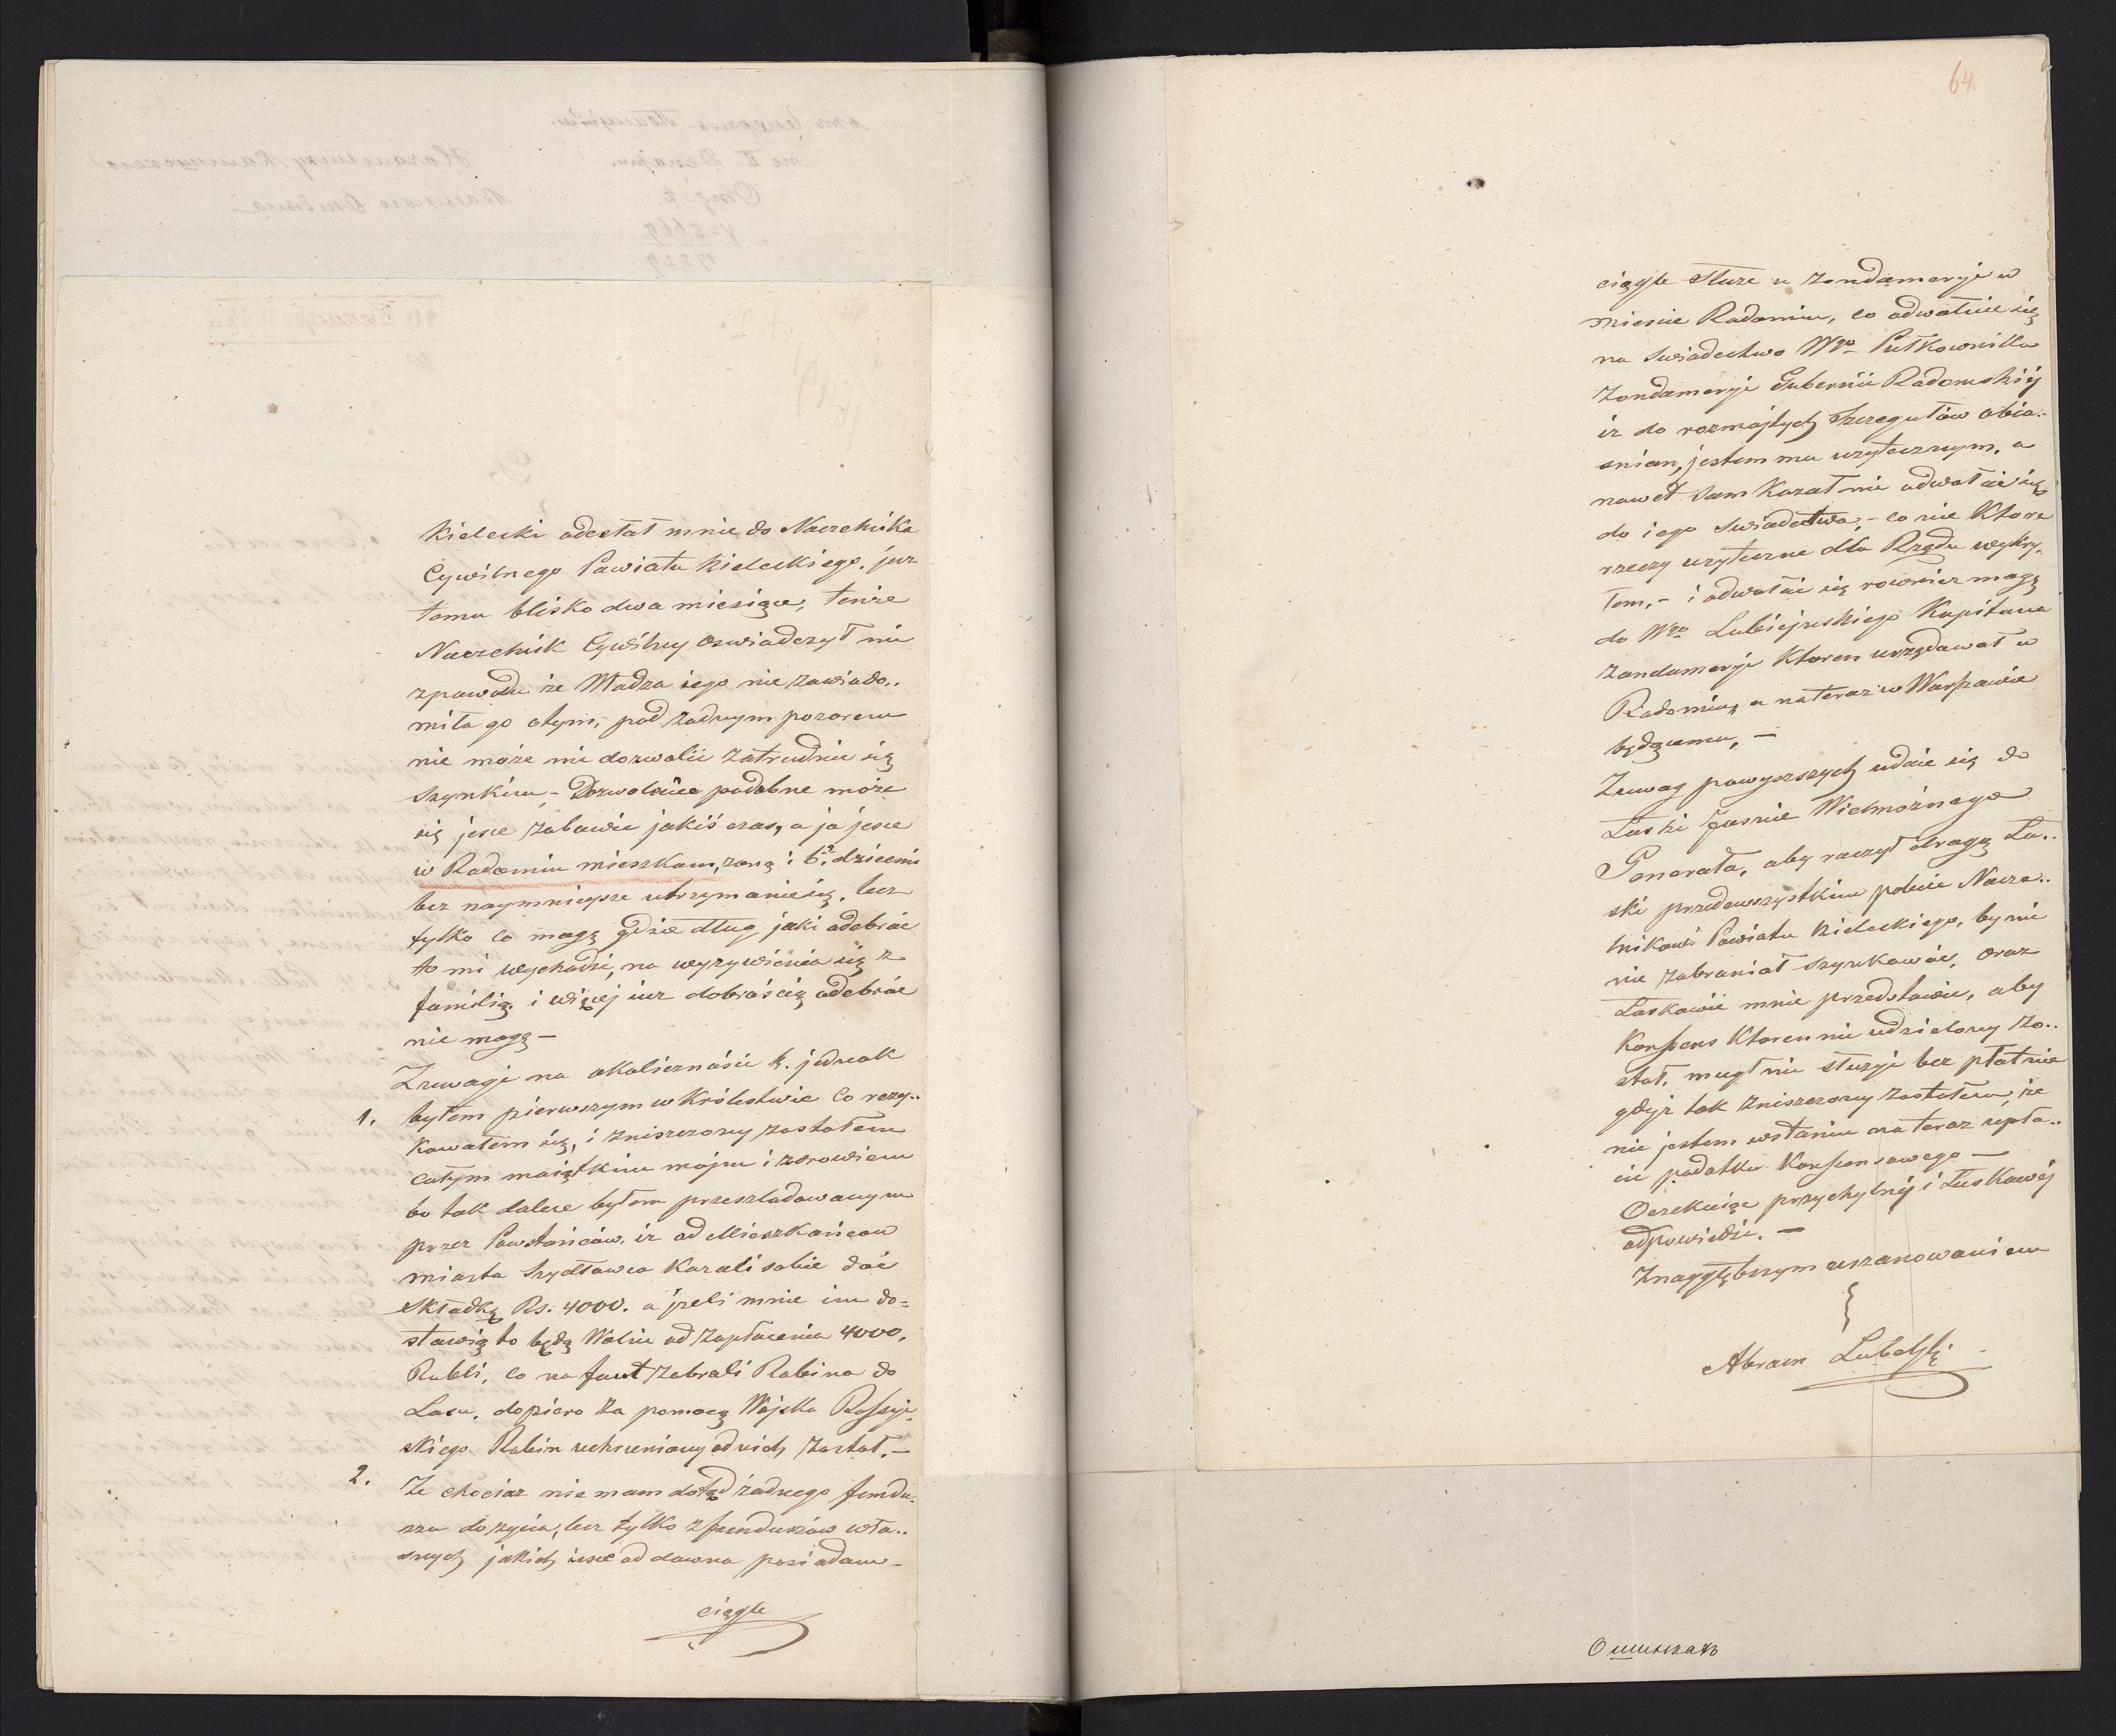 Kielecki odesłał mnie do Naczelnika
Cywilnego Powiatu Kieleckiego, juz
temu blisko dwa miesiące, tenże
Naczelnik Cywilny oswiadczył mi
zpowodu że Władza iego nie zawiado..
miła go otym, pod żadnym pozorem
nie może mi dozwolić zatrudnić się
Szynkiem, - Dozwolenie podobne może
się jesce zabawić jakiś czas, a ja jesce
w Radomiu mieszkam, zoną i 6. dziećmi
bez naymnieysze utrzymanie się, lecz
tylko co mogę gdzie dług jaki odebrać
to mi wychodzi, na wyzywienia się z
familią i więcej iuz dobrością odebrać
nie mogę —
Zuwagi na okoliczności t. jednak
1. byłem pierwszym w Królestwie co rezy..
kowałem się, i zniszczony zostałem
całym maiątkim mojm i zdrowiem
bo tak dalece byłem przesladowanym
przez Powstańców, iz od Mieszkańcow
miasta Szydłowca kazali sobie dać
składkę Rs. 4000. a jzeli mnie im do=
stawią to będą Wolni od zapłacenia 4000.
Rubli, co na fant zebrali Rabina do
Lasu, dopiero za pomocą Wojska Rossyj.
skiego Rabin uchroniony od nich został. —
2. Ze chociaz nie mam dotąd żadnego fundu.
szu do zycia, lecz tylko z funduszów wła..
snych jakich iesce od dawna posiadam -
ciągle
64.
ciągle Sluze u Zondamerji w
miesie Radomiu, co odwołuie się
na swiadectwo Wgo Pułkownika
Zondamerji Gubernii Radomskiéj
iz do rozmajtych Szczegułów obia..
snien, jestem mu uzytecznym, a
nawet sam kazał mi odwołać się
do iego swiadectwa, - co nie ktore
rzeczy uzyteczne dla Rządu wykry.
łem, - i odwołać się rowniez mogę
do Wgo Lubiejnskiego Kapitana
Zandamerji ktoren urzędował w
Radomiu, a nateraz w Warszawie
będącemu, —
Zuwag powyzszych udaie się do
Łaski Jasnie Wielmożnego
Generała, aby raczył drogę Ła..
ski przedewszystkim polecić Nacze..
lnikowi Powiatu Kieleckiego, by mi
nie zabraniał szynkować, oraz
Łaskawie mnie przedstawić, aby
Konsens ktoren mi udzielony zo..
stał, mugł mi służyć bez płatnie
gdyż tak zniszczony zostałem, że
nie jestem wstaniu ani teraz zapła..
cić podatku Konsensowego —
Oczekuiąc przychylnéj i Łaskawéj
odpowiedzi. —
Znaygłębszym uszanowaniem
Abram Lubelski